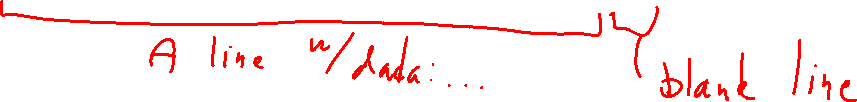 A line w/data:...
blank line